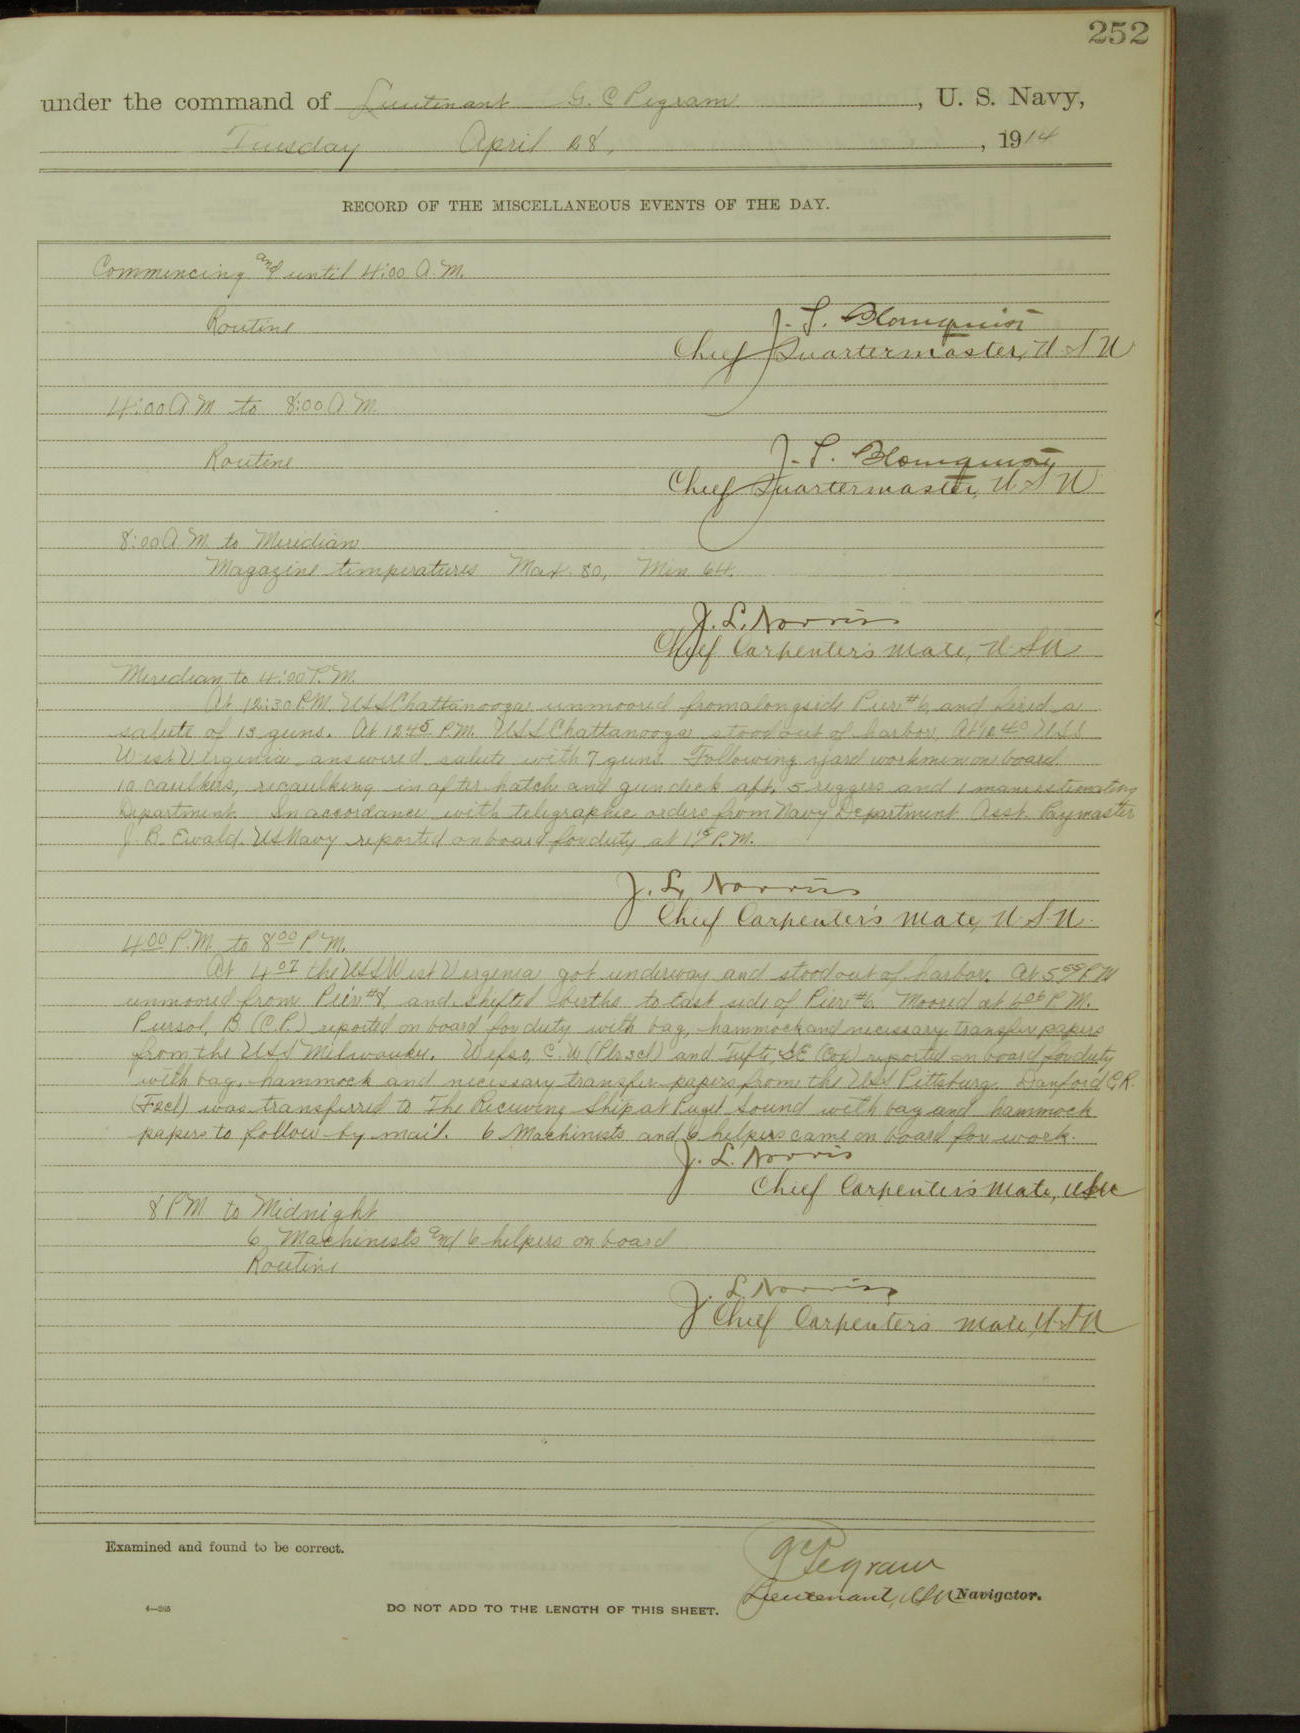 252
under the command of Lieutenant G. C Pegram, U. S. Navy,
Tuesday April 28, 1914
RECORD OF THE MISCELLANEOUS EVENTS OF THE DAY.
Commencing and until 4:00 A.M.
Routine
J. P. Blomquist
Chief Quartermaster, U S N
4:00 A M to 8:00 A M.
Routine
J. P. Blomquist
Chief Quartermaster, U S N
8:00 A M. to Meridian
Magazine temperatures Max. 80, Min 64.
J. L. Norris
Chief Carpenter's Mate, U. S N
Meridian to 4:00 P.M.
At 12:30 P.M. U S S Chattanooga unmoored from alongside Pier #6, and fired a
salute of 13 guns. At 12 45 P.M. U S S Chattanooga stood out of harbor, At 12 40 U S S
West Virginia answered salute with 7 guns. Following yard workmen on board
10 caulkers, recaulking in after hatch and gun deck aft, 5 riggers and 1 man estimating
Department. In accordance with telegraphic orders from Navy Department Asst. Paymaster
J. B. Ewald. U S Navy reported on board for duty at 1 15 P.M.
J. L. Norris
Chief Carpenter's Mate, U. S. N.
4 00 P.M. to 8 00 P.M.
At 4 07 the U S S West Virginia got underway and stood out of harbor. At 5 55 P.M
unmoored from Pier #8, and shifted berths to East side of Pier #6. Moored at 6 06 P.M.
Pursol, B. (C.P.) reported on board for duty with bag, hammock and necessary transfer papers
from the U S S Milwaukee. C. W (Pls 3cl) and Tufts, S E (Cox) reported on board for duty
with bag, hammock and necessary transfer papers from the U S S Pittsburg. Danford G R.
(F2cl) was transferred to The Receiving Ship at Puget Sound with bag and hammock
papers to follow by mail. 6 Machinists and 6 helpers came on board for work.
J. L. Norris
Chief Carpenter's Mate, U S N
8 P M to Midnight
6 Machinists and 6 helpers on board
Routine
J. L. Norris
Chief Carpenter's Mate, U. S. N
Examined and found to be correct.
G C Pegram
Lieutenant, U S N Navigator.
4—265
DO NOT ADD TO THE LENGTH OF THIS SHEET.